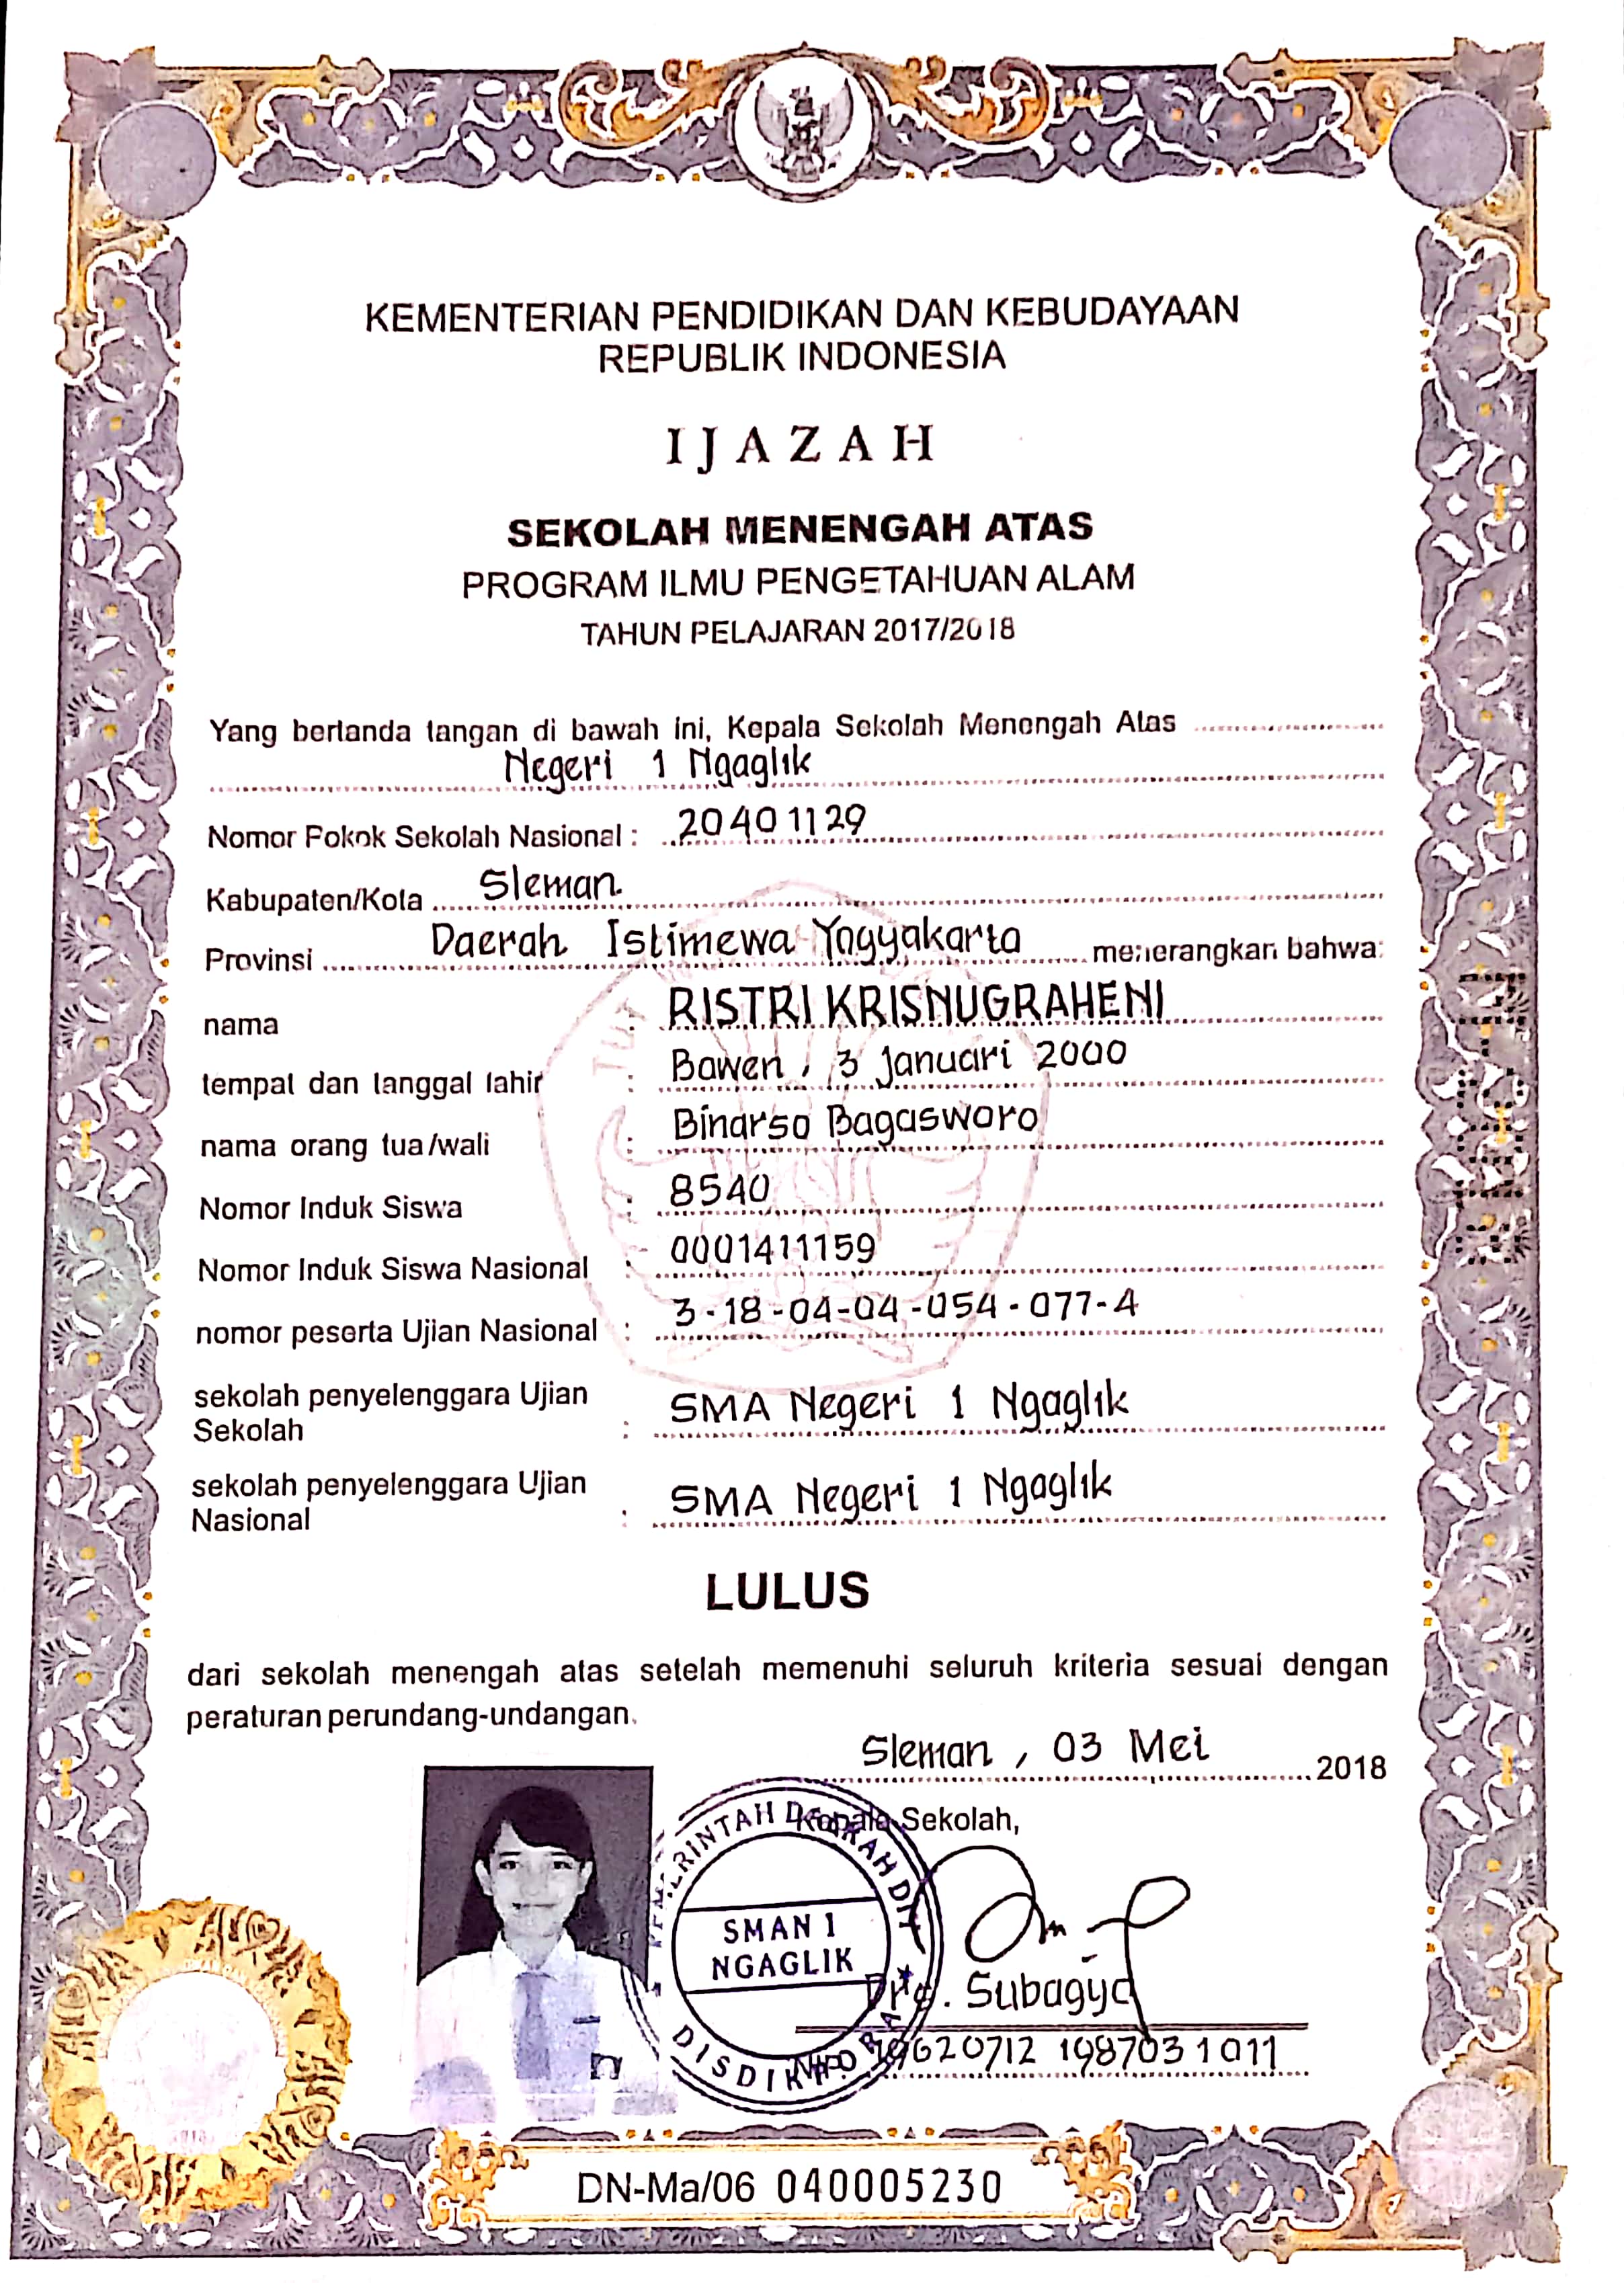 KEMENTERIAN PENDIDIKAN DAN KEBUDAYAAN
REPUBLIK INDONESIA
IJAZAH
SEKOLAH MENENGAH ATAS
PROGRAM ILMU PENGETAHUAN ALAM
TAHUN PELAJARAN 2017/2018
Yang bertanda tangan di bawah ini, Kepala Sekolah Menengah Atas
Negeri 1 Ngaglik
Nomor Pokok Sekolah Nasional : 20401129
Kabupaten/Kota Sleman
Provinsi Daerah Istimewa Yogyakarta menerangkan bahwa:
nama : RISTRI KRISNUGRAHENI
tempat dan tanggal lahir : Bawen, 3 Januari 2000
nama orang tua/wali : Binarso Bagasworo
Nomor Induk Siswa : 8540
Nomor Induk Siswa Nasional : 0001411159
nomor peserta Ujian Nasional : 3-18-04-04-054-077-4
sekolah penyelenggara Ujian
Sekolah : SMA Negeri 1 Ngaglik
sekolah penyelenggara Ujian
Nasional : SMA Negeri 1 Ngaglik
LULUS
dari sekolah menengah atas setelah memenuhi seluruh kriteria sesuai dengan
peraturan perundang-undangan.
Sleman, 03 Mei 2018
Kepala Sekolah,
PEMERINTAH DAERAH DIY
SMAN 1
NGAGLIK
DISDIKPORA
Drs. Subagyo
NIP 19620712 198703 1 011
DN-Ma/06 040005230